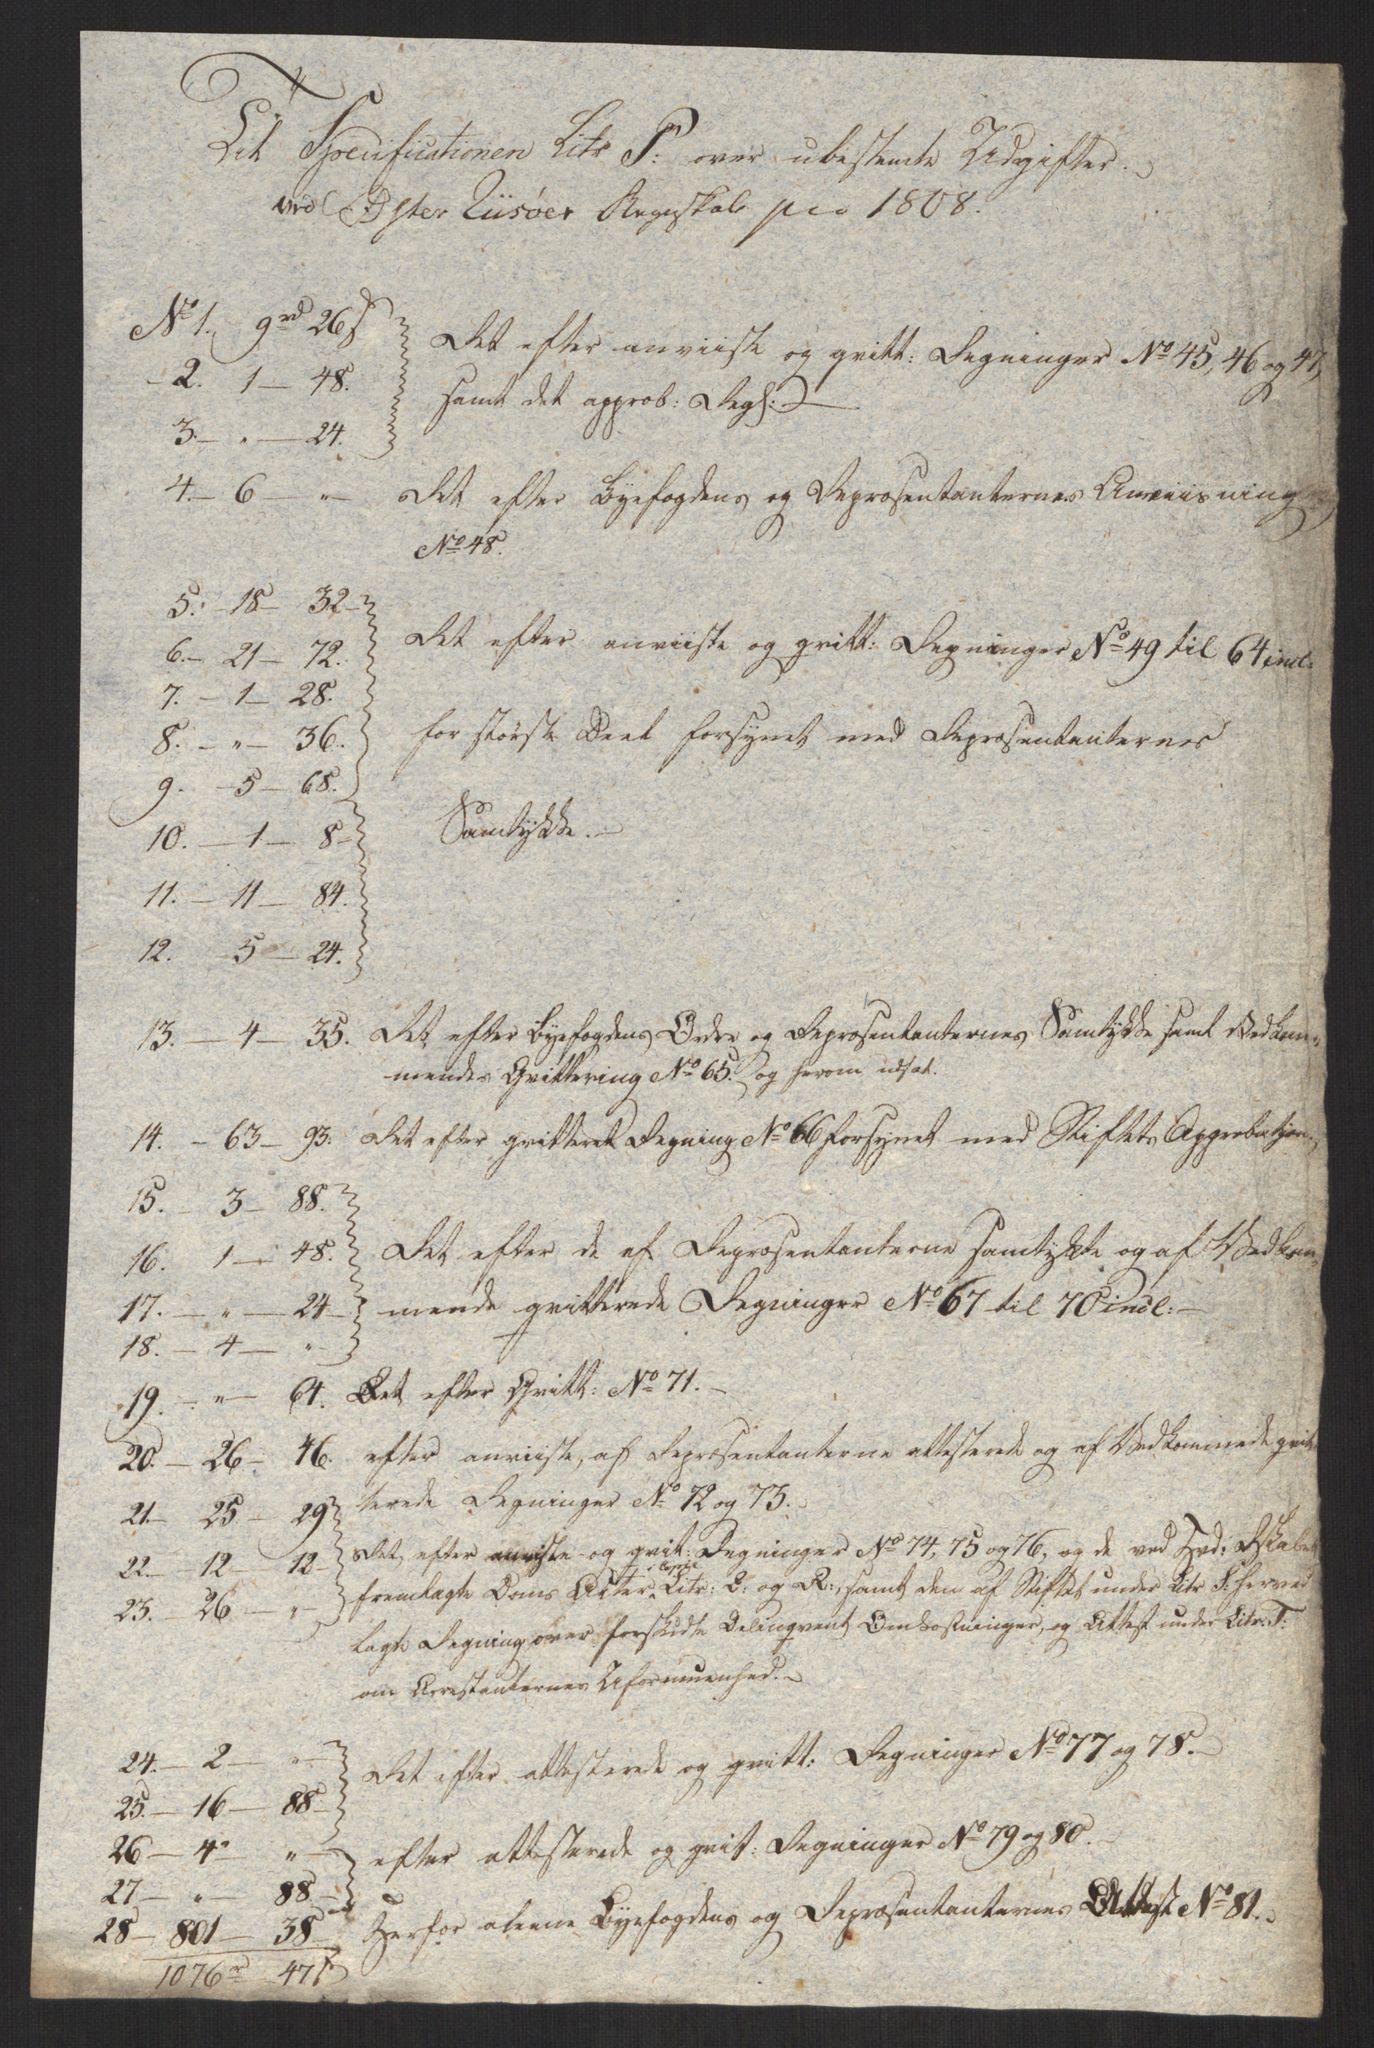 Til Specificationen Litr P: over ubestemte Udgifter
ved Øster Riisøer Regnskab pro 1808.
No 1. 9 rd 26 s
Det efter anviiste og qvitt: Regninger No 45, 46 og 47,
2. 1 — 48.
samt det approb: Regs:
3. — " — 24.
4. — 6 — " — Det efter Byefogdens og Repræsentanternes Anviisning
No 48.
5. — 18 — 32 —
6. — 21 — 72.
Det efter anviiste og qvitt: Regninger No 49 til 64 incl:
7. — 1 — 28.
8. — " — 36.
for største Deel forsynet med Repræsentanternes
9. — 5 — 68.
10. — 1 — 8 —
Samtykke. —
11. — 11 — 84.
12. 5 — 24.
13. — 4 — 35. Det efter Byefogdens Ordre og Repræsentanternes Samtykke samt Vedkom-
mendes Qvittering No 65. og herom udsat.
14. — 63 — 93. Det efter qvitteret Regning No 66 forsynet med Stiftets Approbation.
15. — 3 — 88.
16. 1 — 48. Det efter de af Repræsentanterne samtykte og af Vedkom-
17. — " — 24 — mende qvitterede Regninger No 67 til 70 incl: —
18. — 4 — " —
19. — " — 64. Det efter Qvitt: No 71. —
20. — 26 — 46. efter anviiste, af Repræsentanterne attesterede og af Vedkommende qvit-
21. — 25 — 29 terede Regninger No 72 og 73.
22. — 12 — 12 — Det efter anviiste og qvit: Regninger No 74, 75 og 76, og de ved Hvd: Rskabet
23. — 26 — " — fremlagte Doms Acter i Copie Litr: Q: og R:, samt den af Stiftet under Litr S: herved
lagte Regning over forskudte Delinqvent Omkostninger, og Attest under Litr: T:
om Arrestanternes Uformuenhed. —
24. — 2 — " —
Det efter attesterede og qvitt: Regninger No 77 og 78. —
25. — 16 — 88 —
26 — 4 " — efter attesterede og qvit: Regninger No 79 og 80.
27 — " — 88 —
28 — 801 — 38 Herfor alene Byefogdens og Repræsentanternes Attest No 81.
1076 rd 47 s